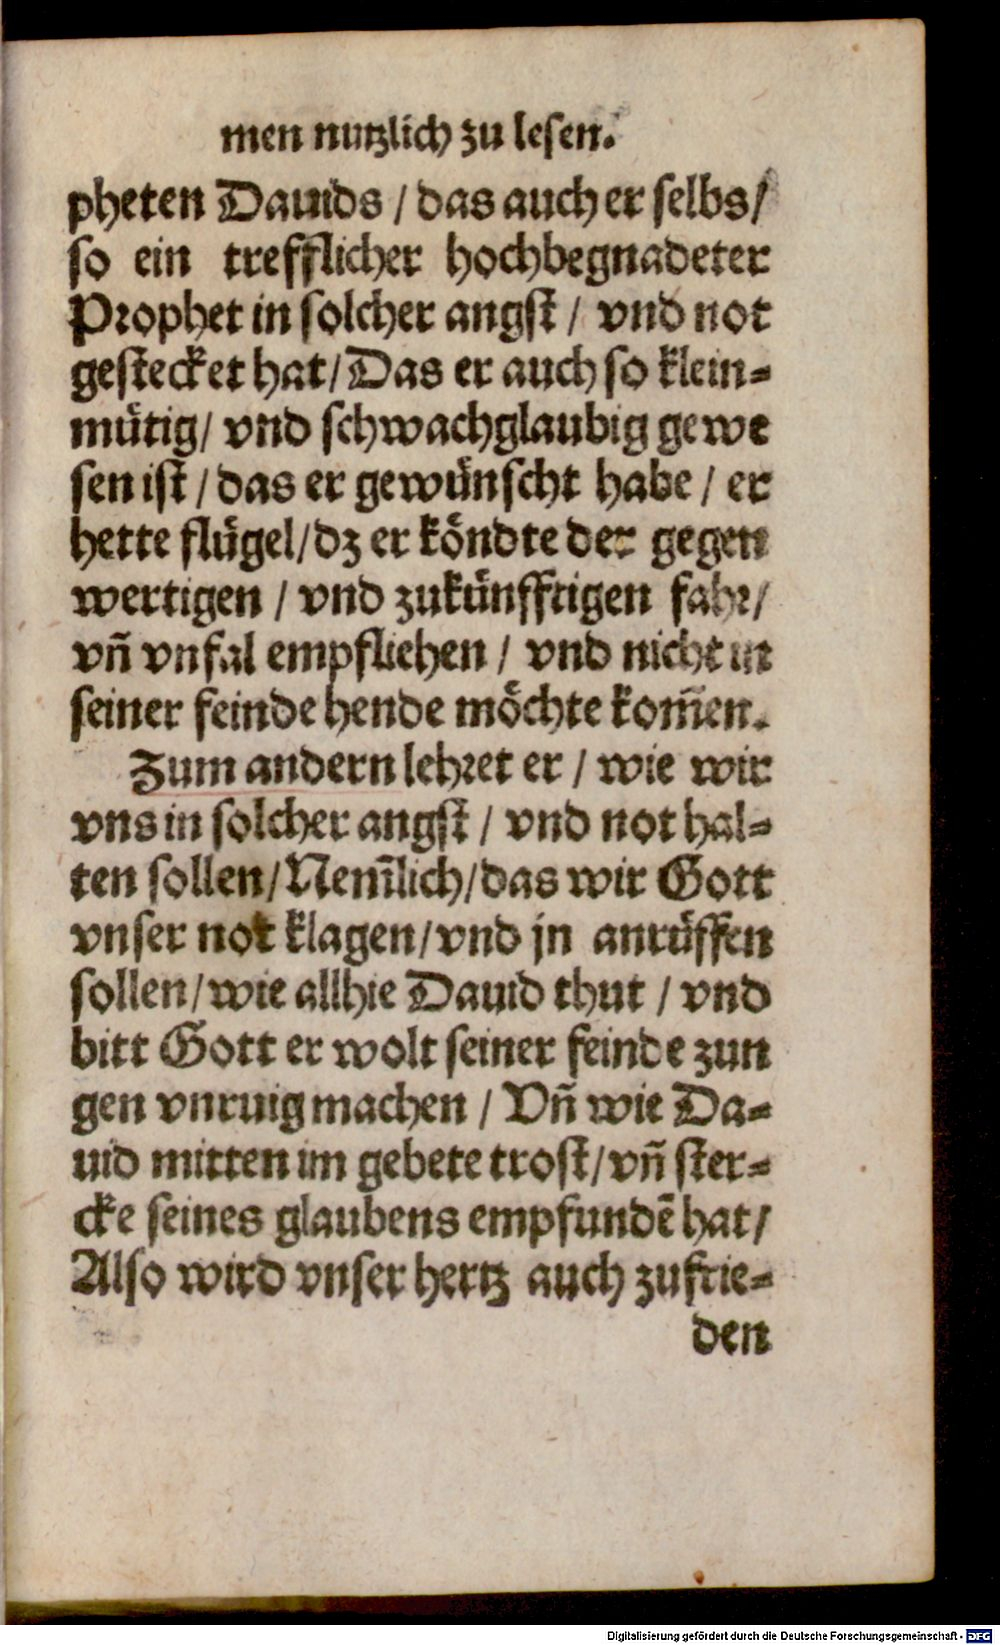 men nutzlich zu lesen.
pheten Dauids / das auch er selbs /
so ein trefflicher hochbegnadeter
Prophet in solcher angst / vnd not
gestecket hat / Das er auch so klein-
mütig / vnd schwachglaubig gewe
sen ist / das er gewünscht habe / er
hette flügel / dz er köndte der gegen
wertigen / vnd zukünfftigen fahr /
vñ vnfal empfliehen / vnd nicht in
seiner feinde hende möchte kom̃en.
Zum andern lehret er / wie wir
vns in solcher angst / vnd not hal-
ten sollen / Nem̃lich / das wir Gott
vnser not klagen / vnd jn anrüffen
sollen / wie allhie Dauid thut / vnd
bitt Gott er wolt seiner feinde zun
gen vnruig machen / Vñ wie Da-
uid mitten im gebete trost / vñ ster-
cke seines glaubens empfundẽ hat /
Also wird vnser hertz auch zufrie-
den
Digitalisierung gefördert durch die Deutsche Forschungsgemeinschaft - DFG